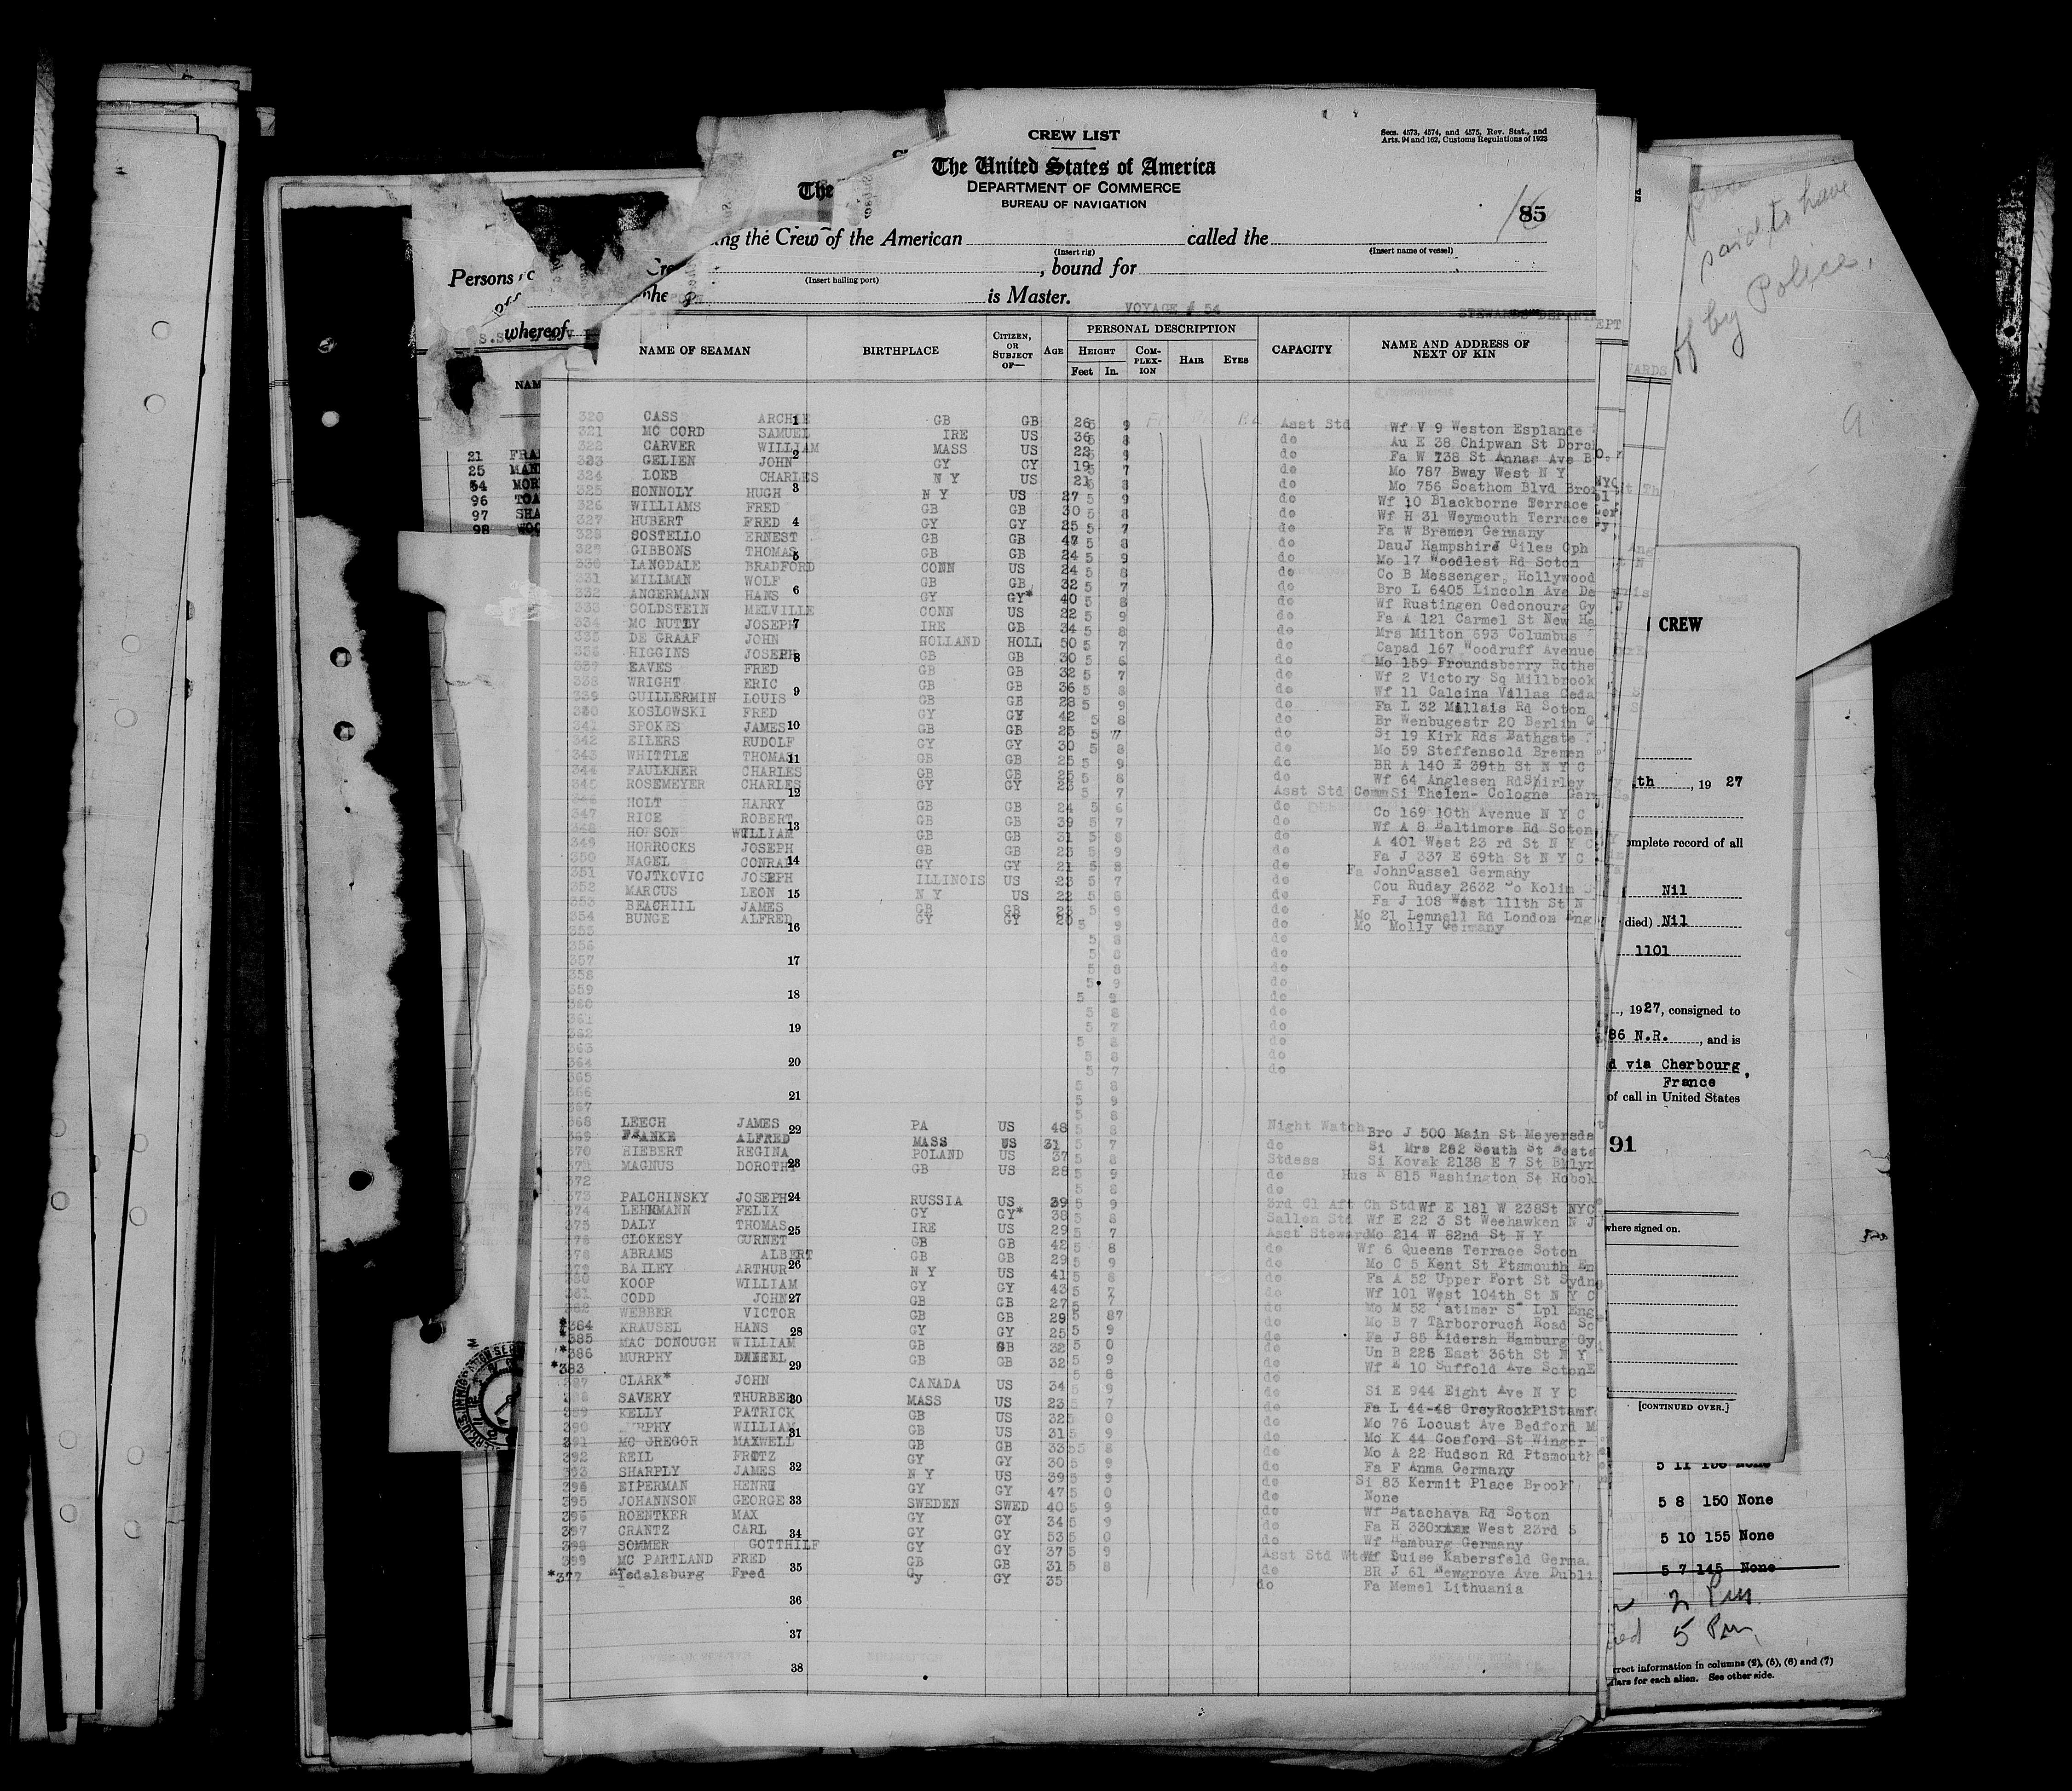 CREW LIST
Secs. 4573, 4574, and 4575, Rev. Stat., and
Arts. 94 and 162, Customs Regulations of 1923
The United States of America
DEPARTMENT OF COMMERCE
BUREAU OF NAVIGATION
The
85
ng the Crew of the American called the
(Insert rig) (Insert name of vessel)
Persons
, bound for
(Insert hailing port)
is Master.
whereof
VOYAGE # 54
NAME OF SEAMAN BIRTHPLACE CITIZEN, OR SUBJECT OF— AGE PERSONAL DESCRIPTION CAPACITY NAME AND ADDRESS OF NEXT OF KIN
HEIGHT COMPLEXION HAIR EYES
Feet In.
320 CASS ARCHIE GB GB 26 5 9 Asst Std Wf V 9 Weston Esplande
321 MC CORD SAMUEL IRE US 36 5 8 do Au E 38 Chipwan St Dorch
322 CARVER WILLIAM MASS US 22 5 9 do Fa W 738 St Annas Ave B
323 GELIEN JOHN GY GY 19 5 7 do Mo 787 Bway West N Y
324 LOEB CHARLES N Y US 21 5 8 do Mo 756 Soathom Blvd Bron
325 HONNOLY HUGH N Y US 27 5 9 do Wf 10 Blackborne Terrace
326 WILLIAMS FRED GB GB 30 5 8 do Wf H 31 Weymouth Terrace
327 HUBERT FRED GY GY 25 5 7 do Fa W Bremen Germany
328 COSTELLO ERNEST GB GB 47 5 8 do DauJ Hampshird Giles Cph
329 GIBBONS THOMAS GB GB 24 5 9 do Mo 17 Woodlest Rd Soton
330 LANGDALE BRADFORD CONN US 24 5 8 do Co B Messenger, Hollywood
331 MILLMAN WOLF GB GB 32 5 7 do Bro L 6405 Lincoln Ave De
332 ANGERMANN HANS GY GY* 40 5 8 do Wf Rustingen Oedonourg Gy
333 GOLDSTEIN MELVILLE CONN US 22 5 9 do Fa A 121 Carmel St New Ha
334 MC NUTTY JOSEPH IRE GB 34 5 8 do Mrs Milton 693 Columbus
335 DE GRAAF JOHN HOLLAND HOLL 50 5 7 do Capad 167 Woodruff Avenue
336 HIGGINS JOSEPH GB GB 30 5 6 do Mo 159 Froundsberry Rothe
337 EAVES FRED GB GB 32 5 7 do Wf 2 Victory Sq Millbrook
338 WRIGHT ERIC GB GB 36 5 8 do Wf 11 Calcina Villas Ceda
339 GUILLERMIN LOUIS GB GB 28 5 9 do Fa L 32 Millais Rd Soton
340 KOSLOWSKI FRED GY GY 42 5 8 do Br Wenbugestr 20 Berlin G
341 SPOKES JAMES GB GB 25 5 7 do Si 19 Kirk Rds Bathgate
342 EILERS RUDOLF GY GY 30 5 8 do Mo 59 Steffensold Bremen
343 WHITTLE THOMAS GB GB 25 5 9 do BR A 140 E 39th St N Y C
344 FAULKNER CHARLES GB GB 25 5 8 do Wf 64 Anglesen Rd Shirley
345 ROSEMEYER CHARLES GY GY 23 5 7 Asst Std Comm Si Thelen- Cologne Ger
346 HOLT HARRY GB GB 24 5 6 do Co 169 10th Avenue N Y C
347 RICE ROBERT GB GB 39 5 7 do Wf A 8 Baltimore Rd Soton
348 HOPSON WILLIAM GB GB 31 5 8 do A 401 West 23 rd St N Y C
349 HORROCKS JOSEPH GB GB 23 5 9 do Fa J 337 E 69th St N Y C
350 NAGEL CONRAD GY GY 21 5 8 do Fa JohnCassel Germany
351 VOJTKOVIC JOSEPH ILLINOIS US 23 5 7 do Cou Ruday 2632 So Kolin
352 MARCUS LEON N Y US 22 5 8 do Fa J 108 West 111th St N
353 BEACHILL JAMES GB GB 23 5 9 do Mo 21 Lemnell Rd London Eng
354 BUNGE ALFRED GY GY 20 5 9 do Mo Molly Germany
355
356 5 8 do
357 5 8 do
358 5 8 do
359 5 9 do
360 do
361 5 8 do
362 5 7 do
363 5 8 do
364 5 8 do
365 5 7 do
366 5 8
367 5 9
368 LEECH JAMES PA US 48 5 8 Night Watch Bro J 500 Main St Meyersda
369 FRANKE ALFRED MASS US 31 5 7 do Si Mrs 282 South St Bosto
370 HIEBERT REGINA POLAND US 37 5 8 Stdess Si Kovak 2138 E 7 St Bklyn
371 MAGNUS DOROTHY GB US 28 5 9 do Hus R 815 Washington St Hobok
372
373 PALCHINSKY JOSEPH RUSSIA US 39 5 9 3rd Cl Aft Ch Std Wf E 181 W 238St NYC
374 LEHMMANN FELIX GY GY* 38 5 8 Sallon Std Wf E 22 3 St Weehawken N J
375 DALY THOMAS IRE US 29 5 7 Asst Steward Mo 214 W 82nd St N Y
376 CLOKESY GURNET GB GB 42 5 8 do Wf 6 Queens Terrace Soton
378 ABRAMS ALBERT GB GB 29 5 9 do Mo C 5 Kent St Ptsmouth En
379 BAILEY ARTHUR N Y US 41 5 8 do Fa A 52 Upper Fort St Sydne
380 KOOP WILLIAM GY GY 43 5 7 do Wf 101 West 104th St N Y C
381 CODD JOHN GB GB 27 5 7 do Mo M 52 Latimer St Lpl Eng
382 WEBBER VICTOR GB GB 29 5 87 do Mo B 7 Tarbororuch Road So
*384 KRAUSEL HANS GY GY 25 5 9 do Fa J 85 Kidersh Hamburg Gy
*385 MAC DONOUGH WILLIAM GB GB 32 5 0 do Un B 226 East 36th St N Y
*386 MURPHY DANIEL GB GB 32 5 9 do Wf E 10 Suffold Ave SotonE
*383
387 CLARK* JOHN CANADA US 34 5 9 do Si E 944 Eight Ave N Y C
388 SAVERY THURBER MASS US 23 5 7 do Fa L 44-48 GreyRockPlStamf
389 KELLY PATRICK GB US 32 5 0 do Mo 76 Locust Ave Bedford M
390 MURPHY WILLIAM GB US 31 5 9 do Mo K 44 Gosford St Winger
391 MC GREGOR MAXWELL GB GB 33 5 8 do Mo A 22 Hudson Rd Ptsmouth
392 REIL FRITZ GY GY 30 5 9 do Fa F Anma Germany
393 SHARPLY JAMES N Y US 39 5 9 do Si 83 Kermit Place Brook
394 EIPERMAN HENRY GY GY 47 5 0 do None
395 JOHANNSON GEORGE SWEDEN SWED 40 5 9 do Wf Batachava Rd Soton
396 ROENTKER MAX GY GY 34 5 9 do Fa H 330xxxx West 23rd S
397 CRANTZ CARL GY GY 53 5 0 do Wf Hamburg Germany
398 SOMMER GOTTHILF GY GY 37 5 9 Asst Std Wter Wf Luise Kabersfeld Germa
399 MC PARTLAND FRED GB GB 31 5 8 do BR J 61 Newgrove Ave Dubli
*377 Tedalsburg Fred Gy GY 35 do Fa Memel Lithuania
1
2
3
4
5
6
7
8
9
10
11
12
13
14
15
16
17
18
19
20
21
22
23
24
25
26
27
28
29
30
31
32
33
34
35
36
37
38
NAM
21 FRA
25 MAN
54 MOR
96 TOA
97 SHA
98 WOO
said to have
off by Police.
CREW
th , 19 27
omplete record of all
Nil
died) Nil
1101
, 1927, consigned to
86 N.R. , and is
d via Cherbourg,
France
of call in United States
91
where signed on.
[CONTINUED OVER.]
5 11 None
5 8 150 None
5 10 155 None
5 7 145 None
2 Pm
5 Pm
rrect information in columns (2), (5), (6) and (7)
llars for each alien. See other side.